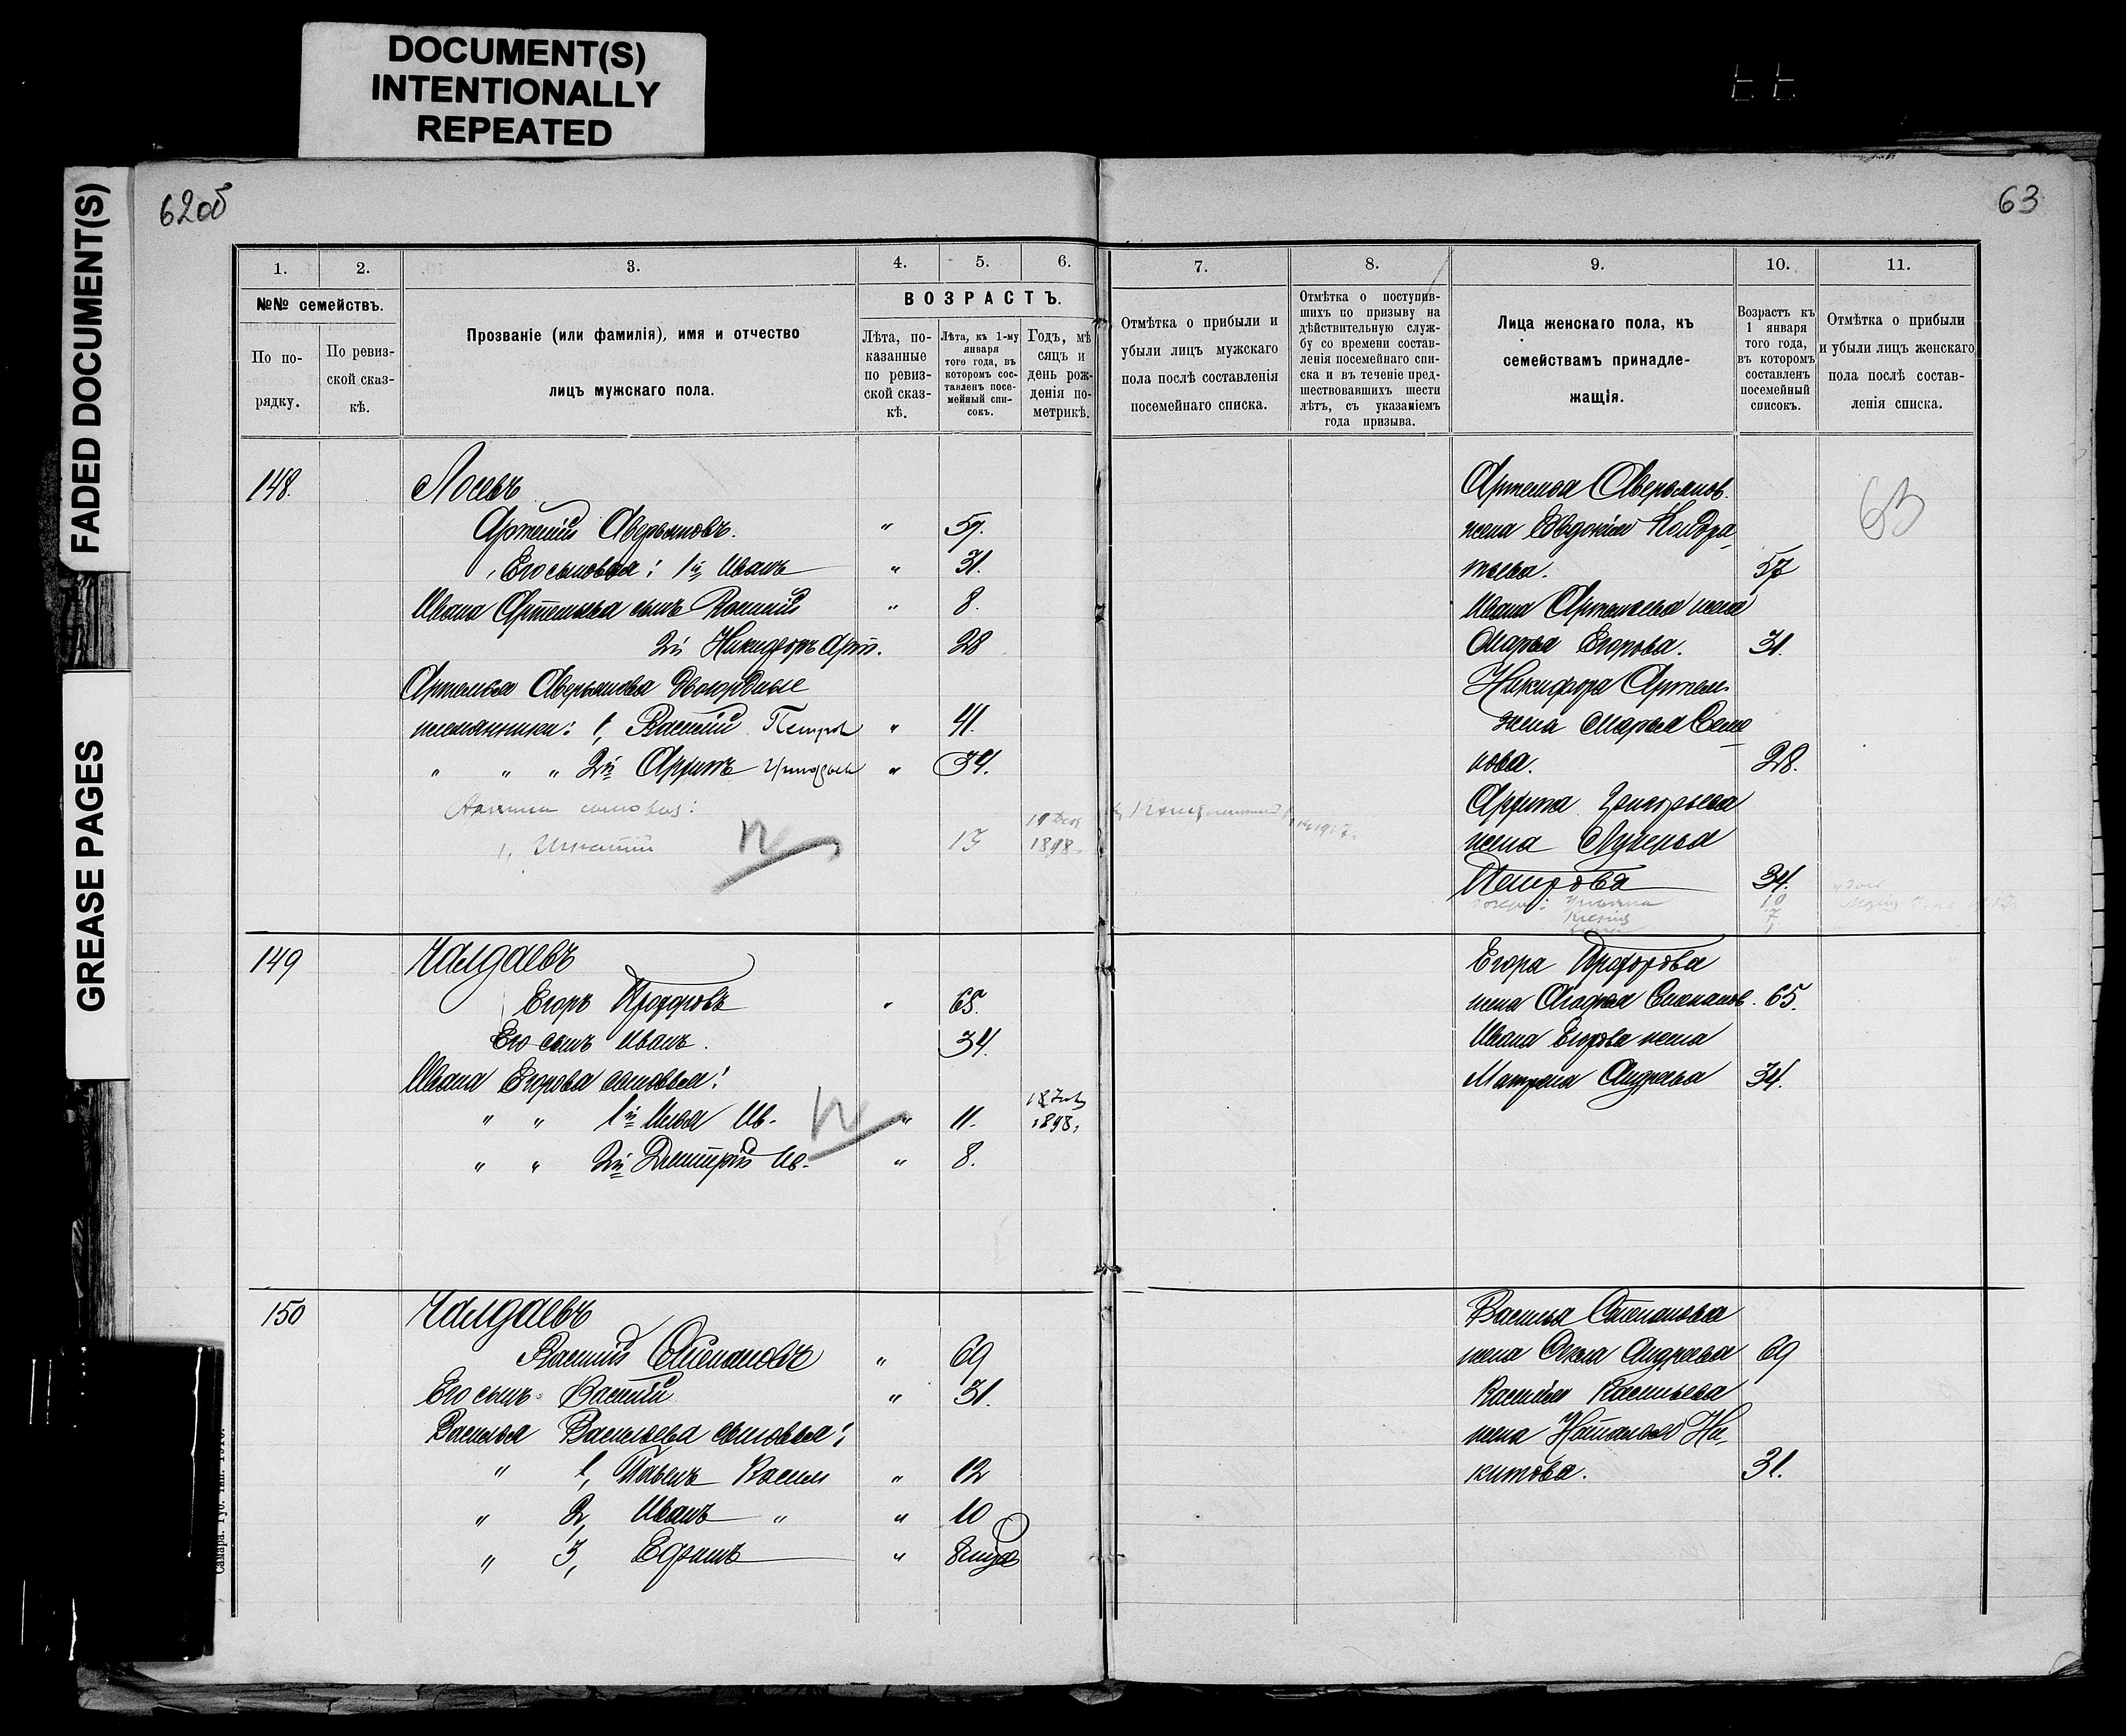 DOCUMENT(S)
INTENTIONALLY
REPEATED
FADED DOCUMENT(S)
GREASE PAGES
62об
63
1. 2. 3. 4. 5. 6.
№№ семействъ.
По по-
рядку.
По ревиз-
ской сказ-
кѣ.
Прозваніе (или фамилія), имя и отчество
лицъ мужскаго пола.
ВОЗРАСТЪ.
Лѣта, по-
казанные
по ревиз-
ской сказ-
кѣ.
Лѣта, къ 1-му
января
того года, въ
которомъ сос-
тавленъ посе-
мейный спи-
сокъ.
Годъ, мѣ
сяцъ и
день рож-
денія по-
метрикѣ.
7. 8. 9. 10. 11.
Отмѣтка о прибыли и
убыли лицъ мужскаго
пола послѣ составленія
посемейнаго списка.
Отмѣтка о поступив-
шихъ по призыву на
дѣйствительную служ-
бу со времени состав-
ленія посемейнаго спи-
ска и въ теченіе пред-
шествовавшихъ шести
лѣтъ, съ указаніемъ
года призыва.
Лица женскаго пола, къ
семействамъ принадле-
жащія.
Возрастъ къ
1 января
того года,
въ которомъ
составленъ
посемейный
списокъ.
Отмѣтка о прибыли
и убыли лицъ женскаго
пола послѣ состав-
ленія списка.
148. Лосевъ
Артемій Аверьяновъ. " 59.
Его сыновья: 1й Иванъ " 31.
Ивана Артемьева сынъ Василій " 8.
2й Никифоръ Арт. 28
Артемья Аверьянова двоюродные
племянники: 1, Василій Петров " 41.
" " " 2й Архипъ " 34.
Архипа сыновья:
1, Игнатій 13 1898
Артемья Аверьянов.
жена Евдокія Кондра
тьева. 57
Ивана Артемьева жена
Марья Егорова. 31.
Никифора Артем.
жена Марья Семе
нова. 28.
Архипа Григорьева
жена Лукерья
Петрова 34.
63
10
7
149 Чалдаевъ
Егоръ Прохоровъ " 65.
Его сынъ Иванъ. 34.
Ивана Егорова сыновья:
" " 1й Илья Ив. " 11. 1898.
" " 2й Дмитрій Ив. " 8.
Егора Прохорова
жена Агафья Степанов. 65.
Ивана Егорова жена
Матрена Андреева 34.
150 Чалдаевъ
Василій Степановъ " 69
Его сынъ Василій " 31.
Василья Васильева сыновья:
" 1, Павелъ Васил " 12
" 2, Иванъ " " 10
" 3, Ефимъ " 8
Василья Степанова
жена Фекла Андреева 69
Василья Васильева
жена Наталья Ни
китова. 31.